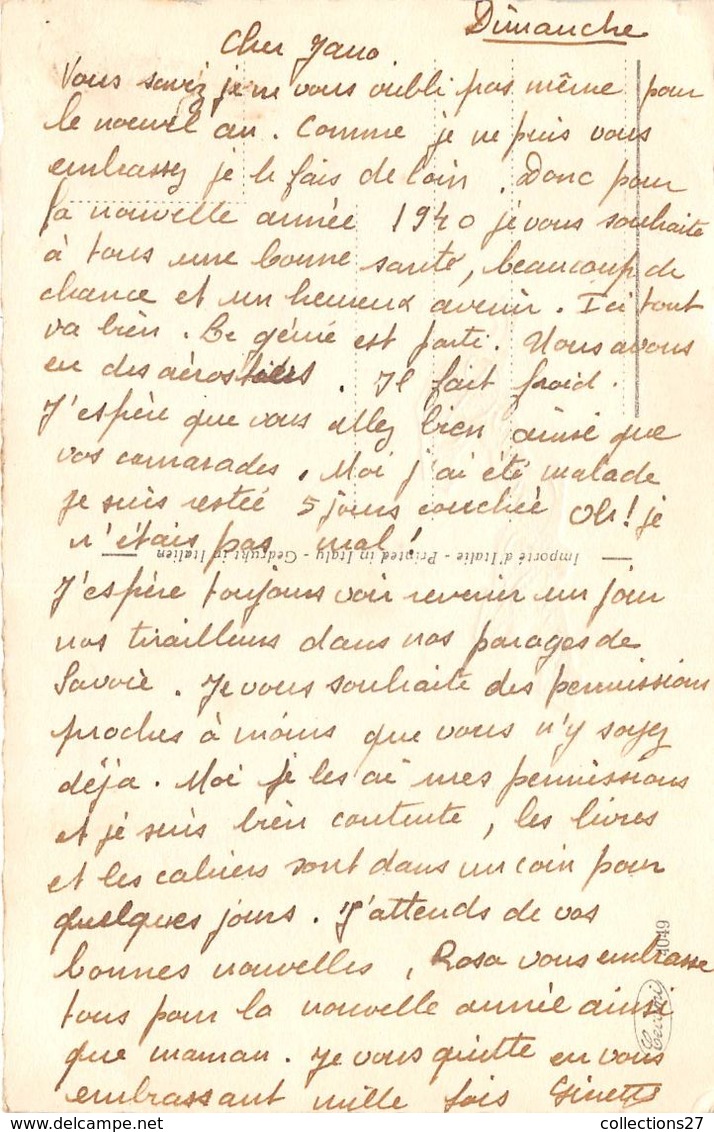 Dimanche
Cher Jano
Vous savez je ne vous oubli pas même pour
le nouvel an. Comme je ne puis vous
embrassez je le fais de loin. Donc pour
la nouvelle année 1940 je vous souhaite
à tous une bonne santé, beaucoup de
chance et un heureux avenir. Ici tout
va bien. Le génie est parti. Nous avons
eu des aérostiers. Il fait froid.
J'espère que vous allez bien ainsi que
vos camarades. Moi j'ai été malade
je suis restée 5 jours couchée Oh! je
n'étais pas mal!
Importé d'Italie - Printed in Italy - Gedruckt in Italien
J'espère toujours voir revenir un jour
nos tirailleurs dans nos parages de
Savoie. Je vous souhaite des permissions
proches à moins que vous n'y soyez
déja. Moi je les ai mes permissions
et je suis bien contente, les livres
et les cahiers sont dans un coin pour
quelques jours. J'attends de vos
bonnes nouvelles, Rosa vous embrasse
tous pour la nouvelle année ainsi
que maman. Je vous quitte en vous
embrassant mille fois Ginette
4049
collections27
© collections27